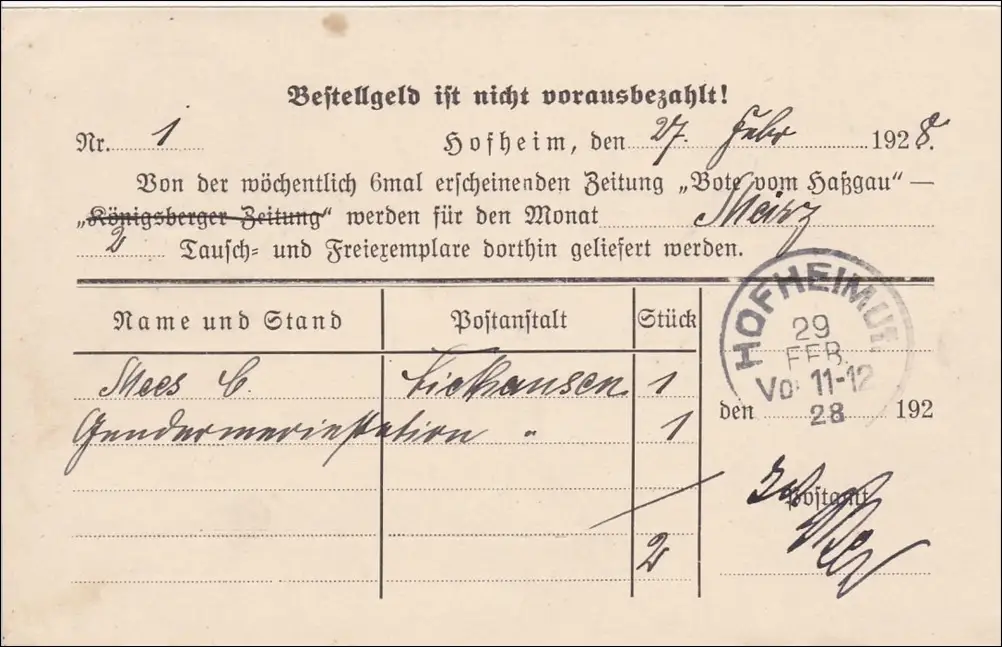 Bestellgeld ist nicht vorausbezahlt!
Nr. 1 Hofheim, den 27. Febr 1928.
Von der wöchentlich 6mal erscheinenden Zeitung „Bote vom Haßgau“ —
„Königsberger Zeitung“ werden für den Monat März
2 Tausch- und Freiexemplare dorthin geliefert werden.
Name und Stand Postanstalt Stück
HOFHEIM
29
FEB.
Vo 11-12
28
Mees C. 1
den 192
Gendarmeriestation " 1
Postamt
2